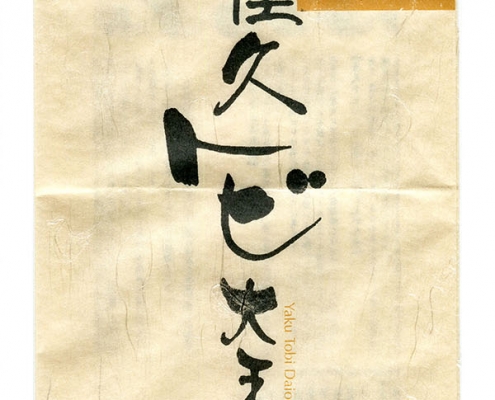 屋久トビ大王
Yaku Tobi Daio